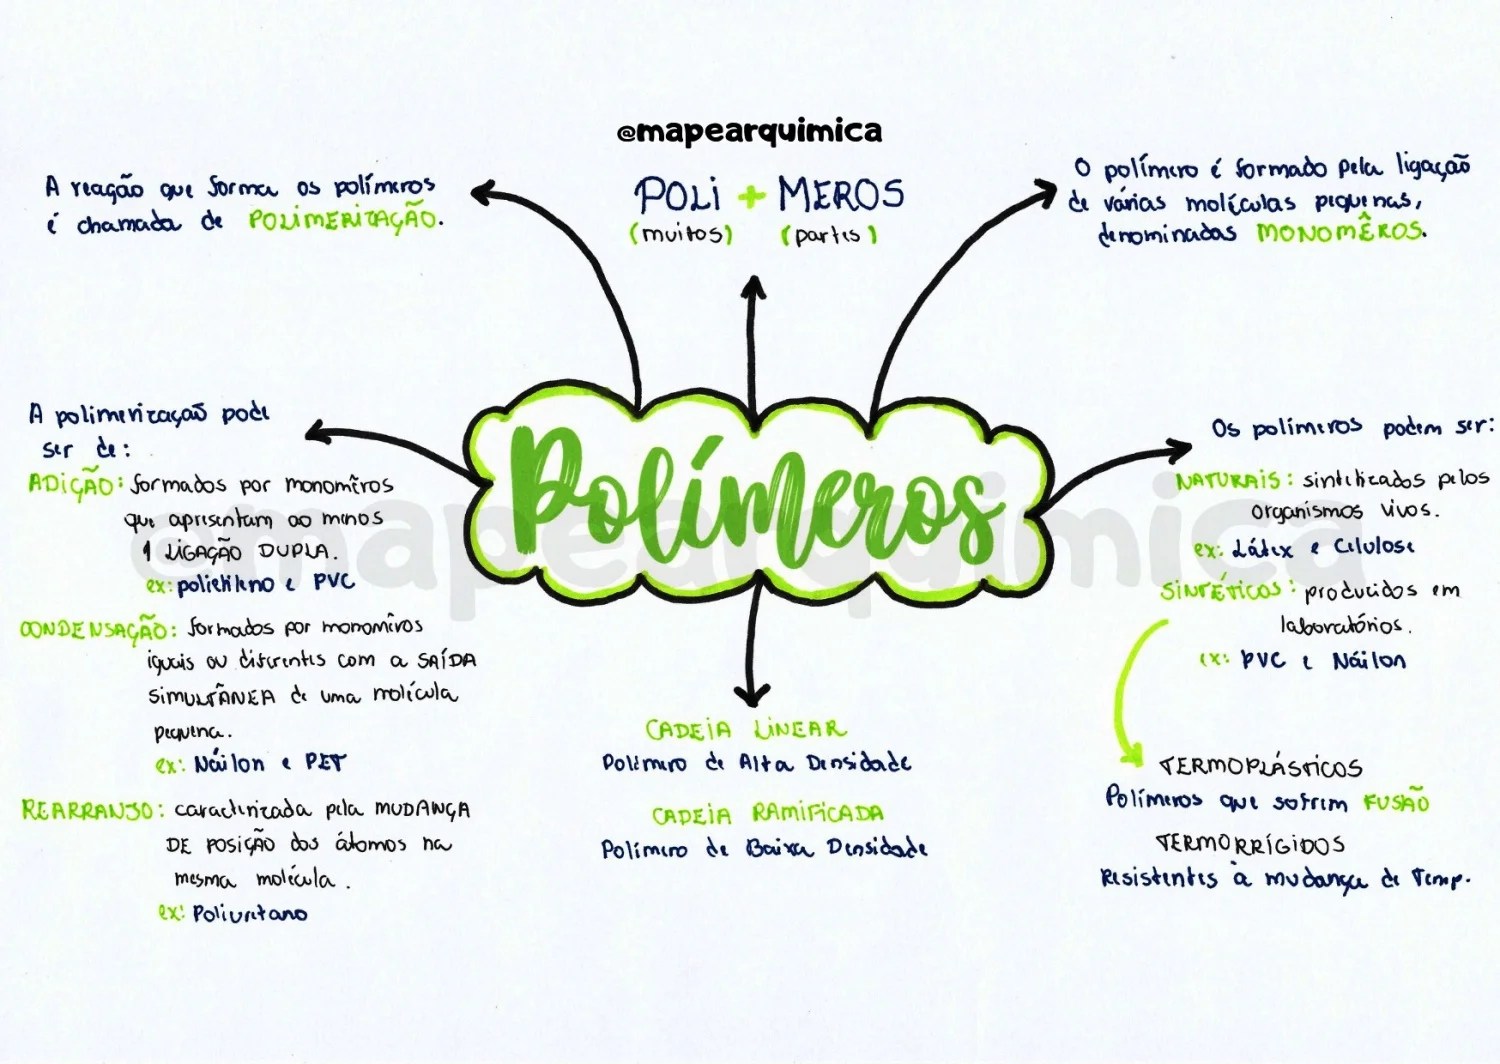 @mapearquimica
POLI + MEROS
(muitos) (partes)
A reação que forma os polímeros
é chamada de POLIMERIZAÇÃO.
O polímero é formado pela ligação
de várias moléculas pequenas,
denominadas MONOMÊROS.
Polímeros
A polimerização pode
ser de:
ADIÇÃO: formados por monomêros
que apresentam ao menos
1 LIGAÇÃO DUPLA.
ex: polietileno e PVC
CONDENSAÇÃO: formados por monomêros
iguais ou diferentes com a SAÍDA
SIMULTÂNEA de uma molécula
pequena.
ex: Náilon e PET
REARRANJO: caracterizada pela MUDANÇA
DE POSIÇÃO dos átomos na
mesma molécula.
ex: Poliuretano
CADEIA LINEAR
Polímero de Alta Densidade
CADEIA RAMIFICADA
Polímero de Baixa Densidade
Os polímeros podem ser:
NATURAIS: sintetizados pelos
organismos vivos.
ex: Látex e Celulose
SINTÉTICOS: produzidos em
laboratórios.
ex: PVC e Náilon
TERMOPLÁSTICOS
Polímeros que sofrem FUSÃO
TERMORRÍGIDOS
Resistentes à mudança de Temp.
@mapearquimica